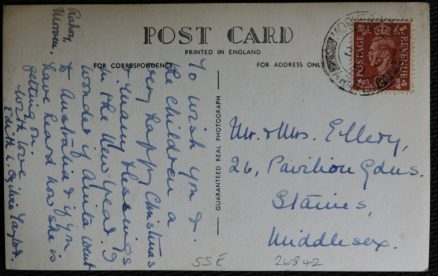 POST CARD
PRINTED IN ENGLAND
FOR CORRESPONDENCE
FOR ADDRESS ONLY
To wish you &
the children a
very happy Christmas
& many blessings
in the New Year. I
wonder if Anita went
to Australia & if you
have heard how she is
getting on.
With love
Edith L. Ogilvie
Morven.
GUARANTEED REAL PHOTOGRAPH
POSTAGE
REVENUE
Mr. & Mrs. Ellery,
26, Pavilion Gdns.
Staines,
Middlesex.
SSE
26842